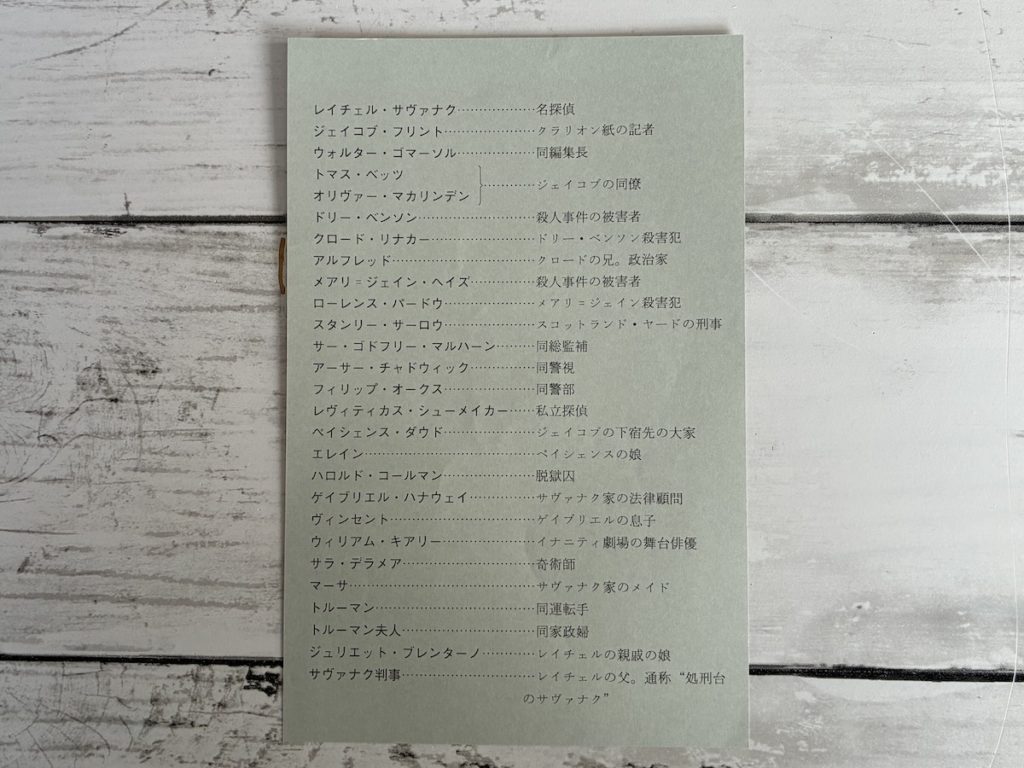 レイチェル・サヴァナク………………名探偵
ジェイコブ・フリント…………………クラリオン紙の記者
ウォルター・ゴマーソル………………同編集長
トマス・ベッツ
オリヴァー・マカリンデン
…………ジェイコブの同僚
ドリー・ベンソン………………………殺人事件の被害者
クロード・リナカー……………………ドリー・ベンソン殺害犯
アルフレッド……………………………クロードの兄。政治家
メアリ=ジェイン・ヘイズ……………殺人事件の被害者
ローレンス・パードウ…………………メアリ=ジェイン殺害犯
スタンリー・サーロウ…………………スコットランド・ヤードの刑事
サー・ゴドフリー・マルハーン………同総監補
アーサー・チャドウィック……………同警視
フィリップ・オークス…………………同警部
レヴィティカス・シューメイカー……私立探偵
ペイシェンス・ダウド…………………ジェイコブの下宿先の大家
エレイン…………………………………ペイシェンスの娘
ハロルド・コールマン…………………脱獄囚
ゲイブリエル・ハナウェイ……………サヴァナク家の法律顧問
ヴィンセント……………………………ゲイブリエルの息子
ウィリアム・キアリー…………………イナニティ劇場の舞台俳優
サラ・デラメア…………………………奇術師
マーサ……………………………………サヴァナク家のメイド
トルーマン………………………………同運転手
トルーマン夫人…………………………同家政婦
ジュリエット・ブレンターノ…………レイチェルの親戚の娘
サヴァナク判事…………………………レイチェルの父。通称“処刑台
のサヴァナク”